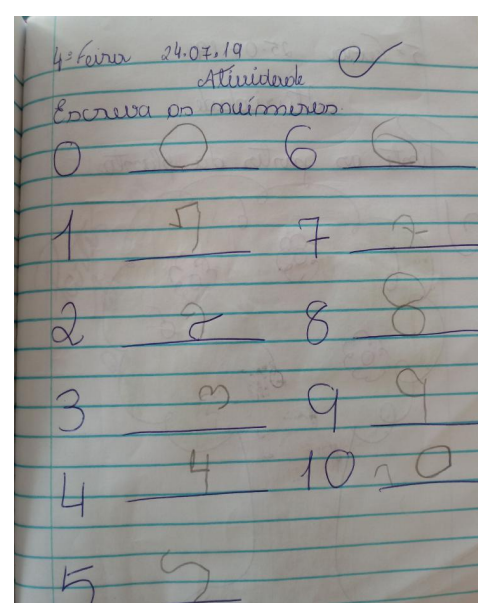 4ª Feira 24.07.19
Atividade
Escreva os números.
0 0 6 6
1 1 7 7
2 2 8 8
3 3 9 9
4 4 10 10
5 5